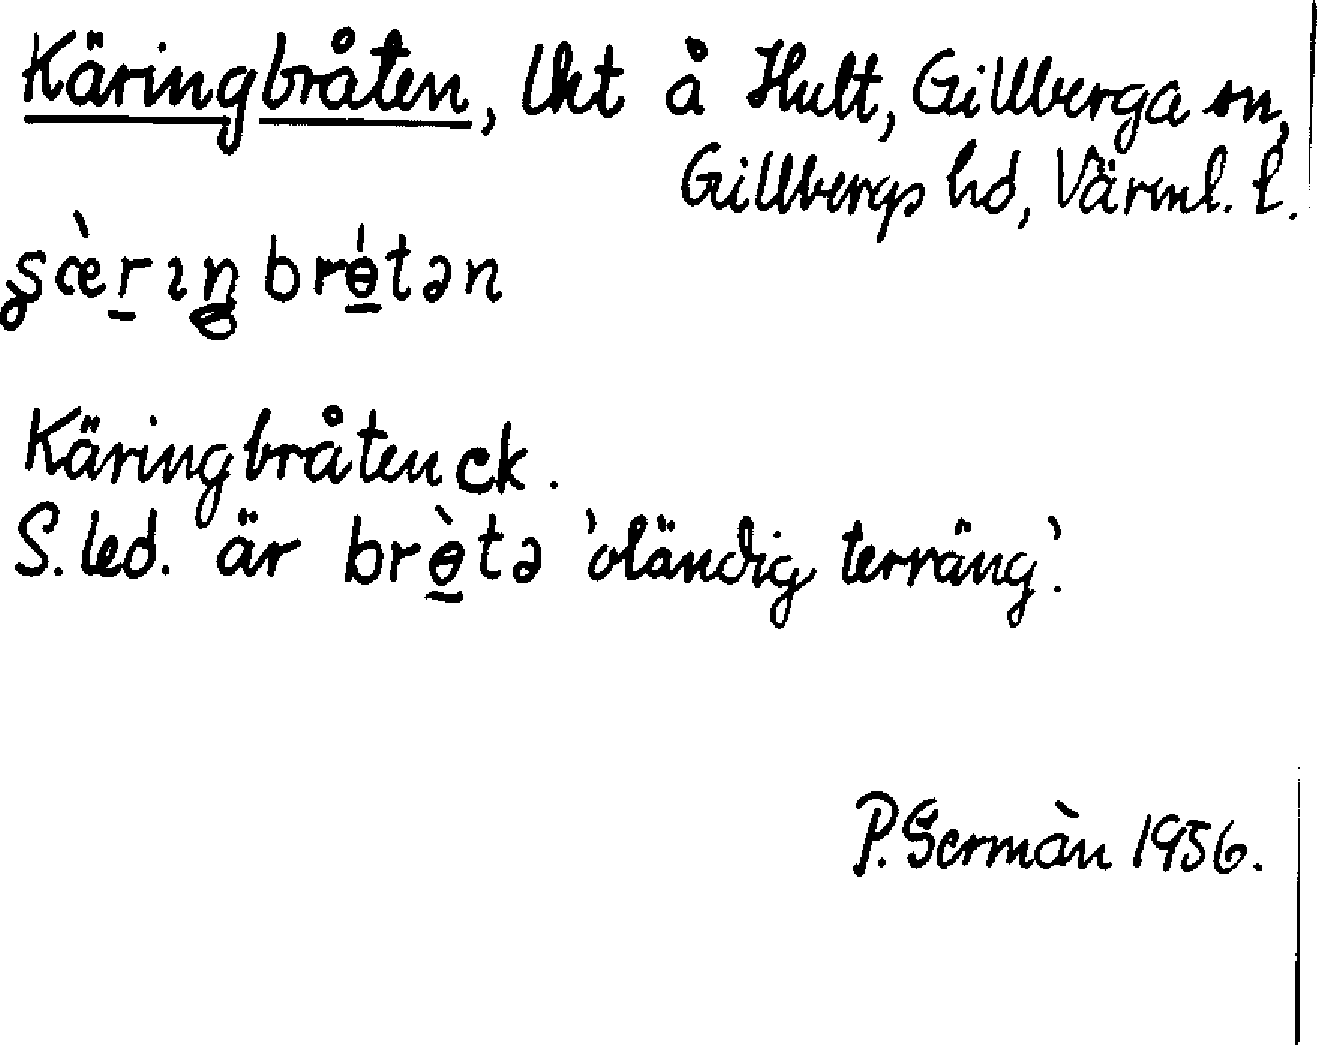 Käringbråten, lht å Hult, Gillberga sn,
Gillbergs hd, Värml. l.
brɵ́tən
Käringbråten ek.
S. led. är brɵ̀tə 'oländig terräng'.
P. Sermàn 1956.